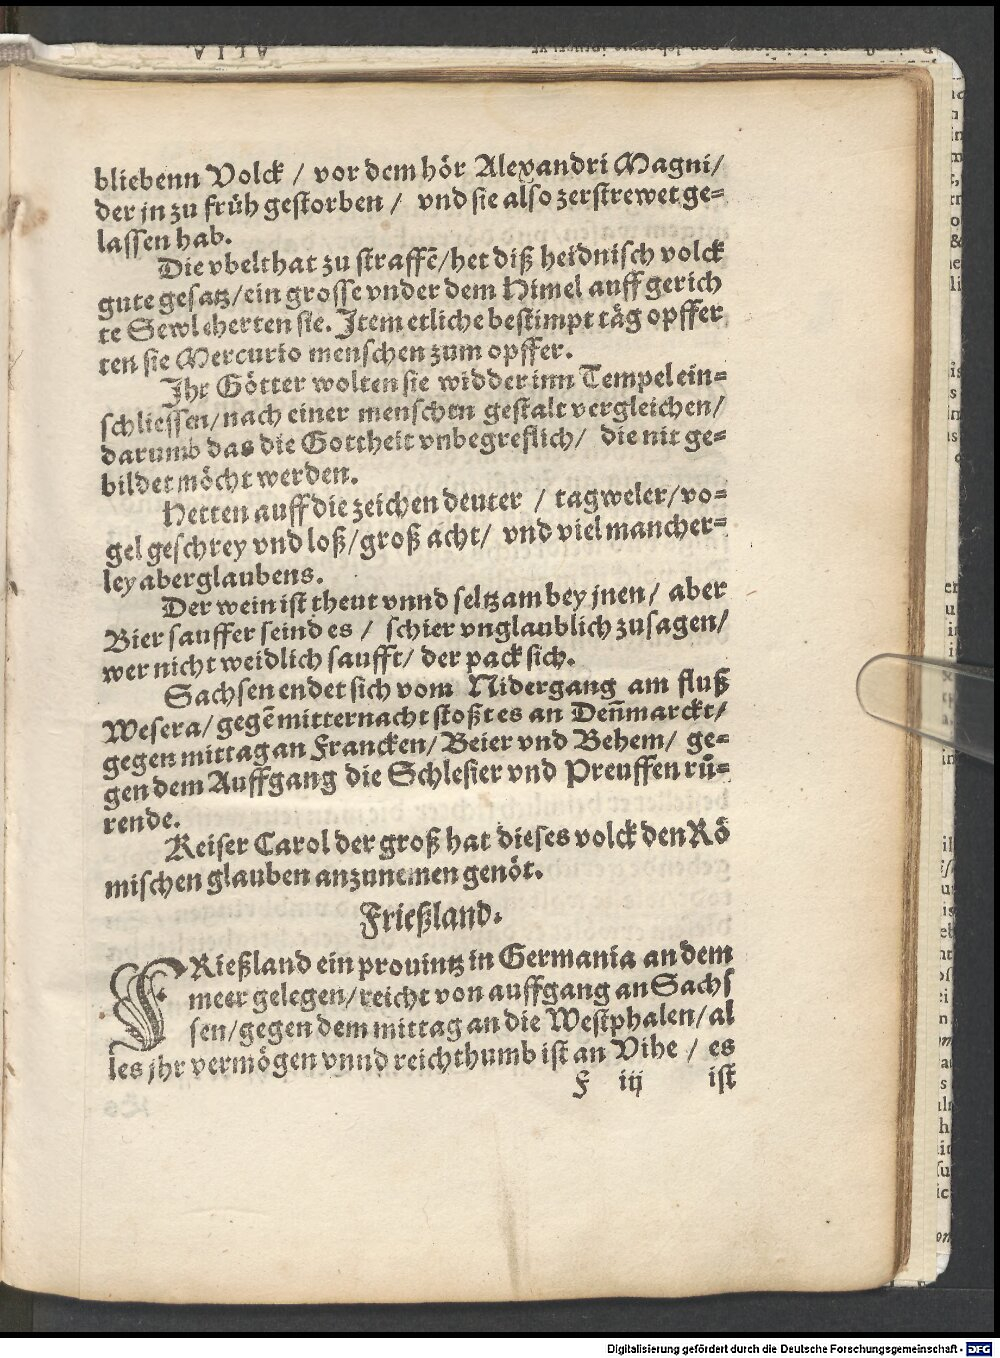 bliebenn Volck / vor dem hör Alexandri Magni/
der jn zu früh gestorben / vnd sie also zerstrewet ge=
lassen hab.
Die vbelthat zu straffē/het diß heidnisch volck
gute gesatz/ein grosse vnder dem Himel auff gerich
te Sewl eherten sie. Item etliche bestimpt täg opffer
ten sie Mercurio menschen zum opffer.
Ihr Götter wolten sie widder inn Tempel ein=
schliessen/nach einer menschen gestalt vergleichen/
darumb das die Gottheit vnbegreflich/ die nit ge=
bildet möcht werden.
Hetten auff die zeichen deuter / tagweler/vo=
gel geschrey vnd loß/groß acht/ vnd viel mancher=
ley aberglaubens.
Der wein ist theur vnnd seltzam bey jnen/ aber
Bier sauffer seind es / schier vnglaublich zusagen/
wer nicht weidlich saufft/ der pack sich.
Sachsen endet sich vom Nidergang am fluß
Wesera/gegē mitternacht stoßt es an Den̄marckt/
gegen mittag an Francken/Beier vnd Behem/ ge=
gen dem Auffgang die Schlesier vnd Preussen rů=
rende.
Keiser Carol der groß hat dieses volck den Rö
mischen glauben anzunemen genöt.
Frießland.
FRießland ein prouintz in Germania an dem
meer gelegen/reicht von auffgang an Sachs
sen/gegen dem mittag an die Westphalen/al
les jhr vermögen vnnd reichthumb ist an Vihe / es
F iij ist
Digitalisierung gefördert durch die Deutsche Forschungsgemeinschaft - DFG